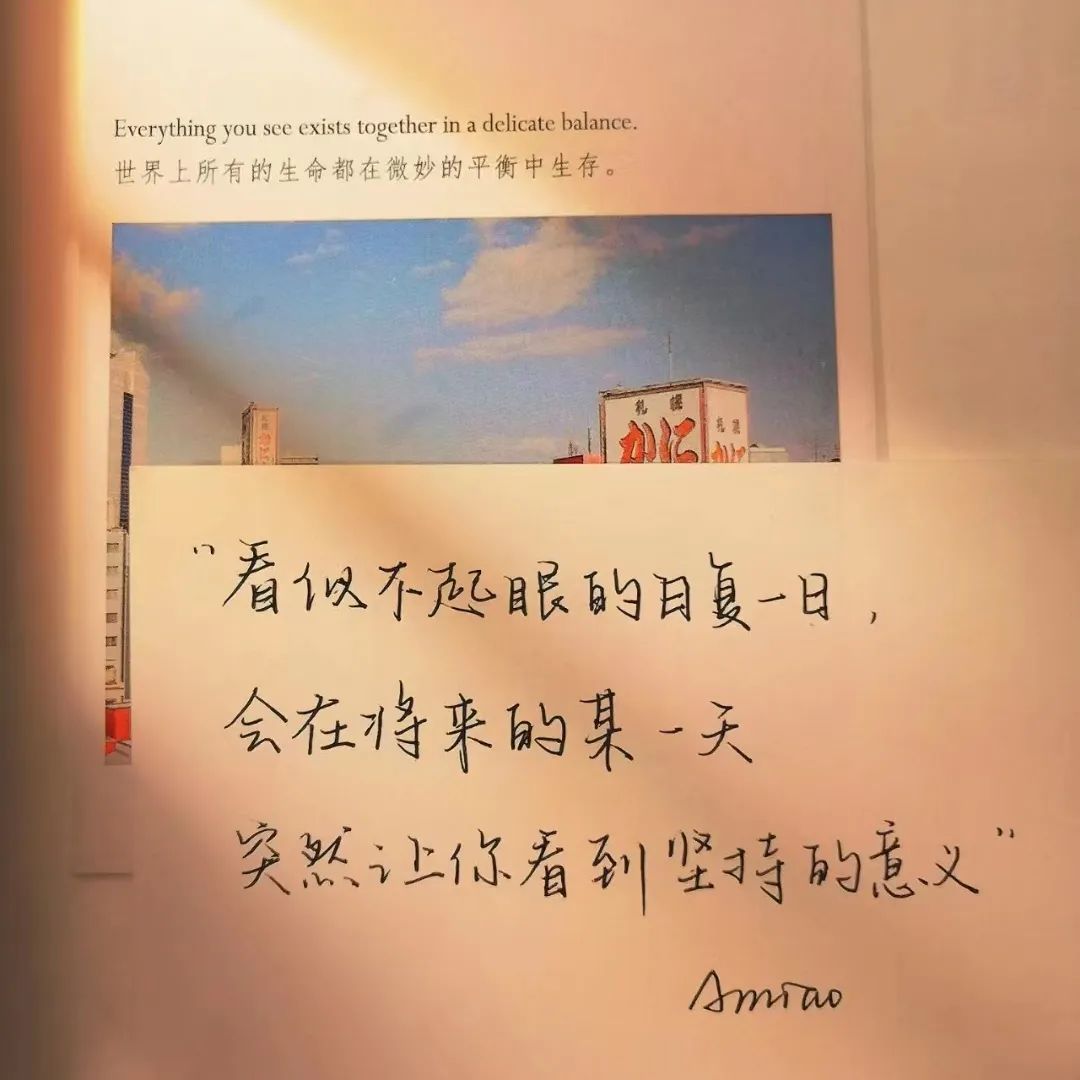 Everything you see exists together in a delicate balance.
世界上所有的生命都在微妙的平衡中生存。
札幌
かに
札幌
かに
札幌
かに
"看似不起眼的日复一日，
会在将来的某一天
突然让你看到坚持的意义"
Amiao